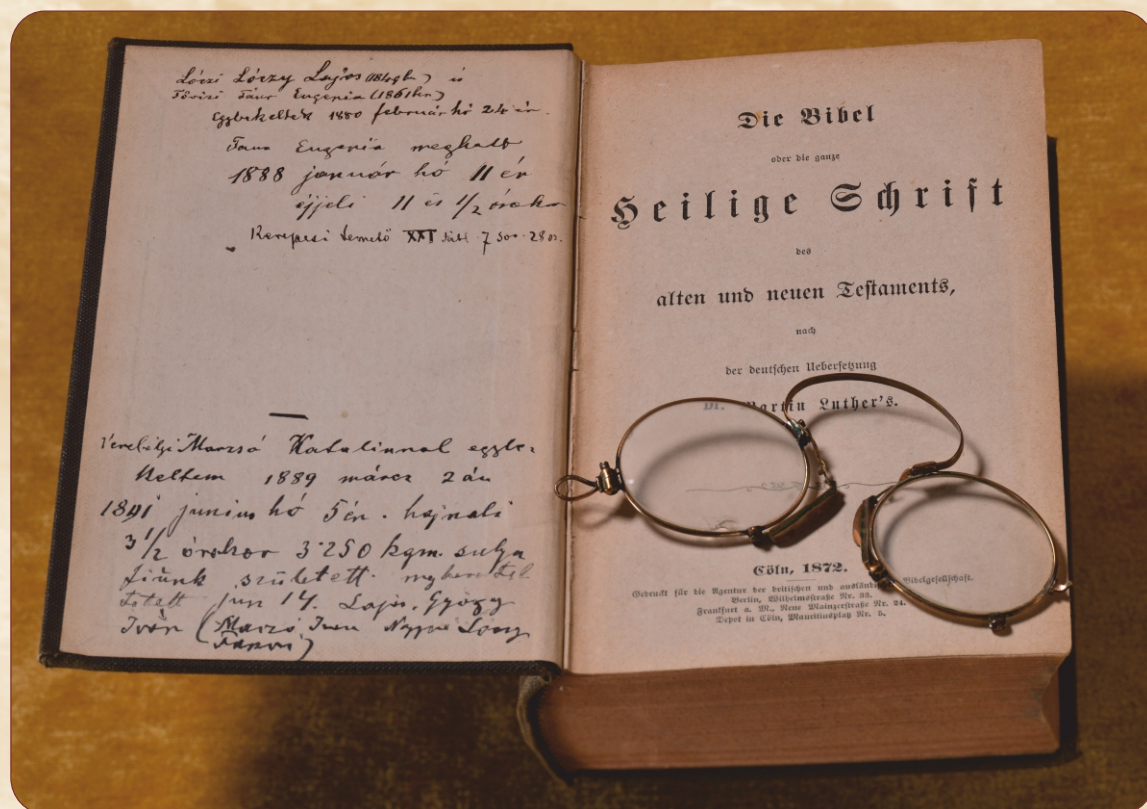 Lóczi Lóczy Lajos (1849ben) és
Eugenia (1861ben)
egybekeltek 1880 február hó 24 én.
Eugenia meghalt
1888 január hó 11 én
éjjeli 11 és 1/2 órakor
Kerepesi temető XXI 7 sor 28
Verebélyi Marzsó Katalinnal egybe-
keltem 1889 márcz 2 án
1891 junius hó 5én. hajnali
3 1/2 órakor 3·250 kgm. sulyu
fiunk született.
jun 14. Lajos, György
Iván (Marzsó Lóczy
Die Bibel
oder die ganze
Heilige Schrift
des
alten und neuen Testaments,
nach
der deutschen Uebersetzung
Dr. Martin Luther's.
Cöln, 1872.
Gedruckt für die Agentur der britischen und ausländischen Bibelgesellschaft.
Berlin, Wilhelmstraße Nr. 33.
Frankfurt a. M., Neue Mainzerstraße Nr. 24.
Depot in Cöln, Mauritiusplatz Nr. 5.